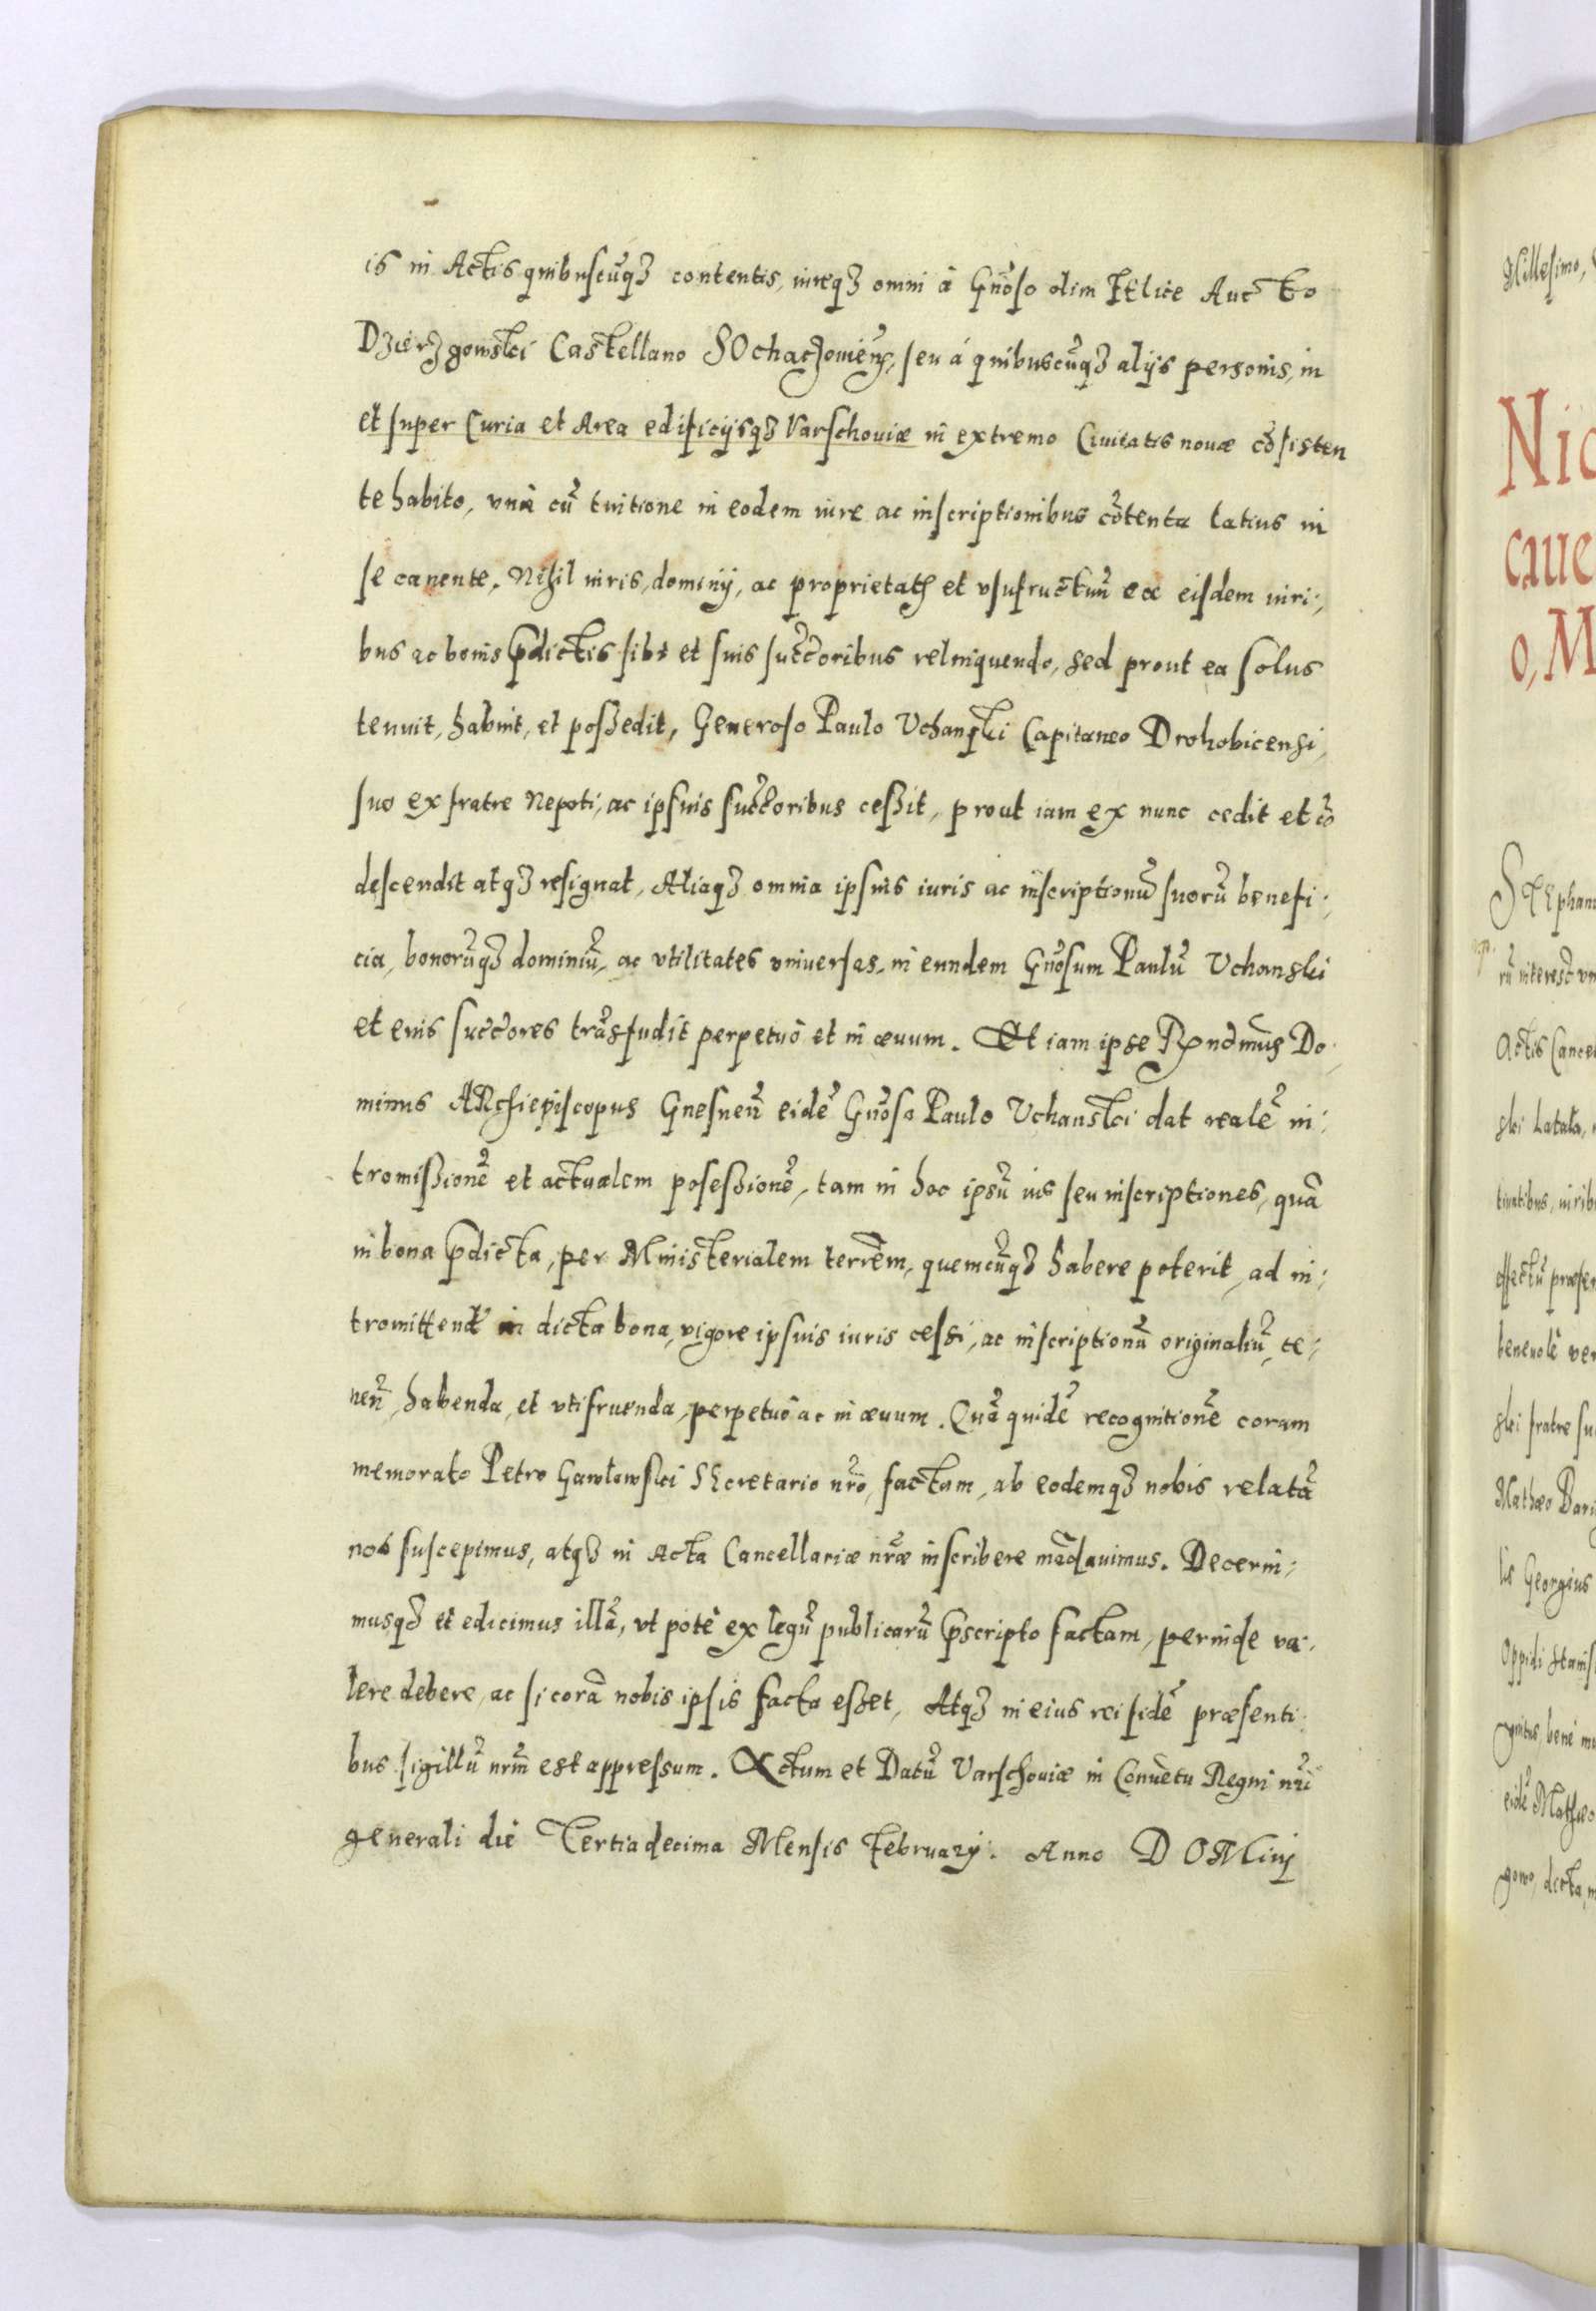 is in Actis quibuscũqꝫ contentis, iureqꝫ omni à Gñoso olim FElice Aucto
Dzierzgowski Castellano SOchaczouieñ, seu á quibuscũqꝫ alijs personis, in
et super Curia et Area edificijsqꝫ Varschouiæ in extremo Ciuitatis nouæ cõsisten
te habito, vnà cũ tuitione in eodem iure ac inscriptionibus cõtenta latius in
se canente. Nihil iuris, dominij, ac proprietatis et vsufructuũ ex eisdem iuri:
bus ac bonis p̃dictis sibi et suis succ̃oribus relinquendo, sed prout ea solus
tenuit, habuit, et possedit, Generoso Paulo Vchanski Capitaneo Drohobicensi,
suo ex fratre Nepoti, ac ipsuis succ̃oribus cessit, prout iam ex nunc cedit et cõ
descendit atqꝫ resignat, Aliaqꝫ omnia ipsius iuris ac inscriptionũ suorũ benefi:
cia, bonorũqꝫ dominiũ, ac vtilitates vniuersas, in eundem Gñosum Paulũ Vchanski
et eius succ̃ores trãsfudit perpetuò et in æuum. Et iam ipse Rñdmus Do:
minus ARchiepiscopus Gnesneñ eidẽ Gñoso Paulo Vchanski dat realẽ in:
tromissionẽ et actualem posessionẽ, tam in hoc ipsũ ius seu inscriptiones, quã
in bona p̃dicta, per Ministerialem terrẽm, quemcũqꝫ habere poterit, ad in:
tromittend̃ in dicta bona, vigore ipsuis iuris cessi, ac inscriptionũ originaliũ, te:
neñ, habenda, et vtifruenda, perpetuò ac in æuum. Quã quidẽ recognitionẽ coram
memorato Petro Gawlowski SEcretario nr̃o, factam, ab eodemqꝫ nobis relatã
nos suscepimus, atqꝫ in Acta Cancellariæ nr̃æ inscribere mãdauimus. Decerni:
musqꝫ et edicimus illã, vt potè ex legũ publicarũ p̃scripto factam, perinde va:
lere debere, ac si corã nobis ipsis facta esset, Atqꝫ in eius rei fidẽ præsenti:
bus sigillũ nr̃m est appressum. Actum et Datũ Varschouiæ in Conuẽtu Regni nr̃i
generali die Tertia decima Mensis Februarij. Anno DOMinj
Millesimo,
Nic
caue
o, M
STEphan
rũ interest
Actis Cancel
ski Latala,
effectũ
beneuolè
ski fratre
Mathæo
lis Georgius
Oppidi
eidẽ Mathæo
gowo, dicta,